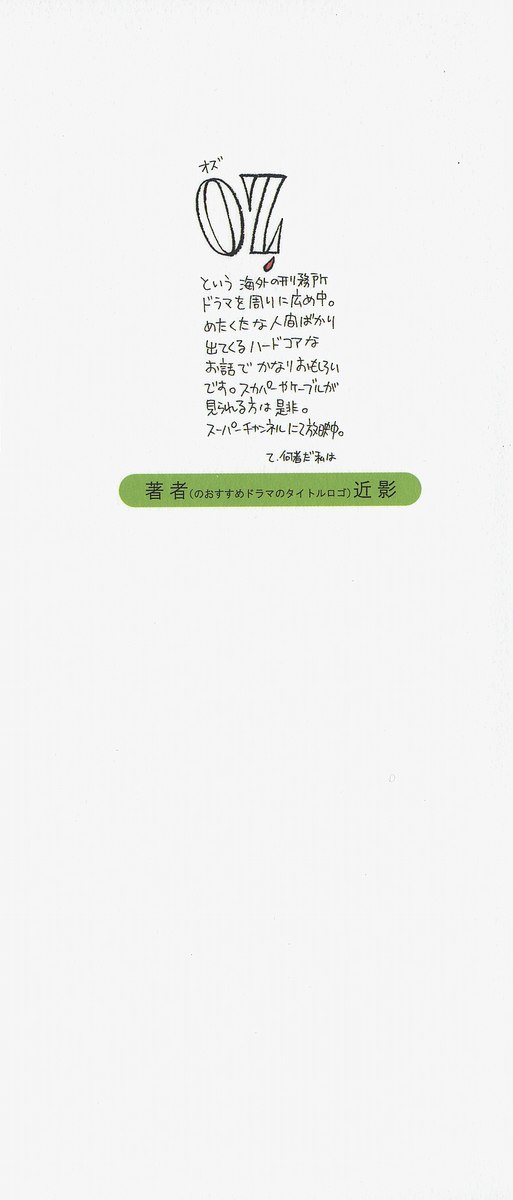 オズ
OZ
という 海外の刑務所
ドラマを周りに広め中。
めたくたな人間ばかり
出てくるハードコアな
お話で かなりおもしろい
です。スカパーやケーブルが
見られる方は是非。
スーパーチャンネルにて放映中。
て、何者だ私は
著者(のおすすめドラマのタイトルロゴ)近影